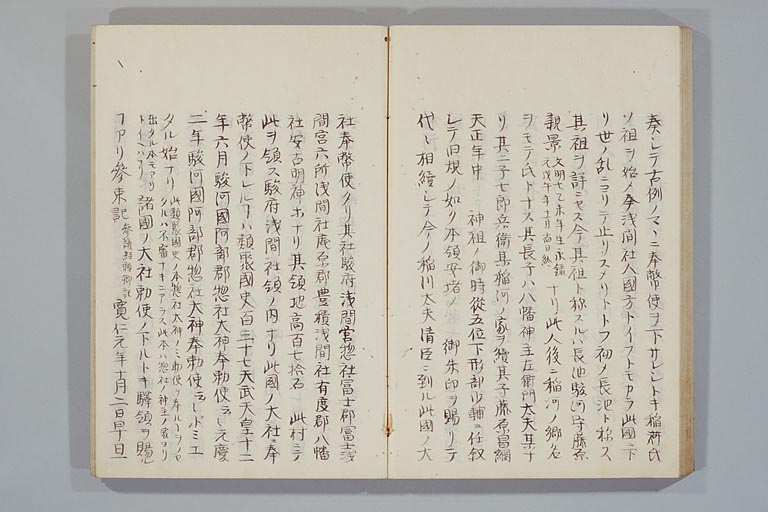 奏シテ古例ノマヽニ奉幣使ヲ下サレシトキ稲河氏
ソ祖ヲ始メ今浅間社人國方トイフトモカラ此國ニ下
リ世ノ乱ニヨリテ止リスメリトトフ初ノ長池ト称ス
其祖ヲ詳ニセス今其祖ト称スルハ長池駿河守藤原
親景文明七乙未年生永禄元戊午年十月百日終ナリ此人後ニ稲河ノ郷名
ヲモテ氏トナス其長子ハ八幡神主左衛門太夫其十
リ其二子七郎兵衛某稲河ノ家ヲ續其子藤原昌綱
天正年中 神祖ノ御時從五位下形部少輔ニ任叙
シテ旧規ノ如ク本領安堵ノ 御朱印ヲ賜リテ
代々相續シテ今ノ稲川太夫清臣ニ到ル此國ノ大
社奉幣使クリ其社駿府浅間宮惣社冨士郡冨士浅
間宮六所浅間社庵原郡豊積浅間社有度郡八幡
社安古明神ホナリ其領地高百七拾石 此村ニテ
此ヲ領ス駿府浅間社領ノ内ナリ此國ノ大社奉
幣使ノ下レルヿハ類聚國史百三十七天武天皇十二
年六月駿河國阿部郡惣社大神奉勅使云々元慶
二年駿河國阿部郡惣社大神奉勅使云々ホミエ
タル始ナリ此類聚國史ノ本惣社大神ノミ勅使ヲ奉ルヿヲノセ
タルハ不審ナキニアラス此本ハ惣社ノ神主ノ家ヨリ
出タル本モアリトイヘハナリ諸國ノ大社勅使ノ下ルトキ驛領ヲ賜
フアリ參東記參議 寛仁元年十月二日早旦